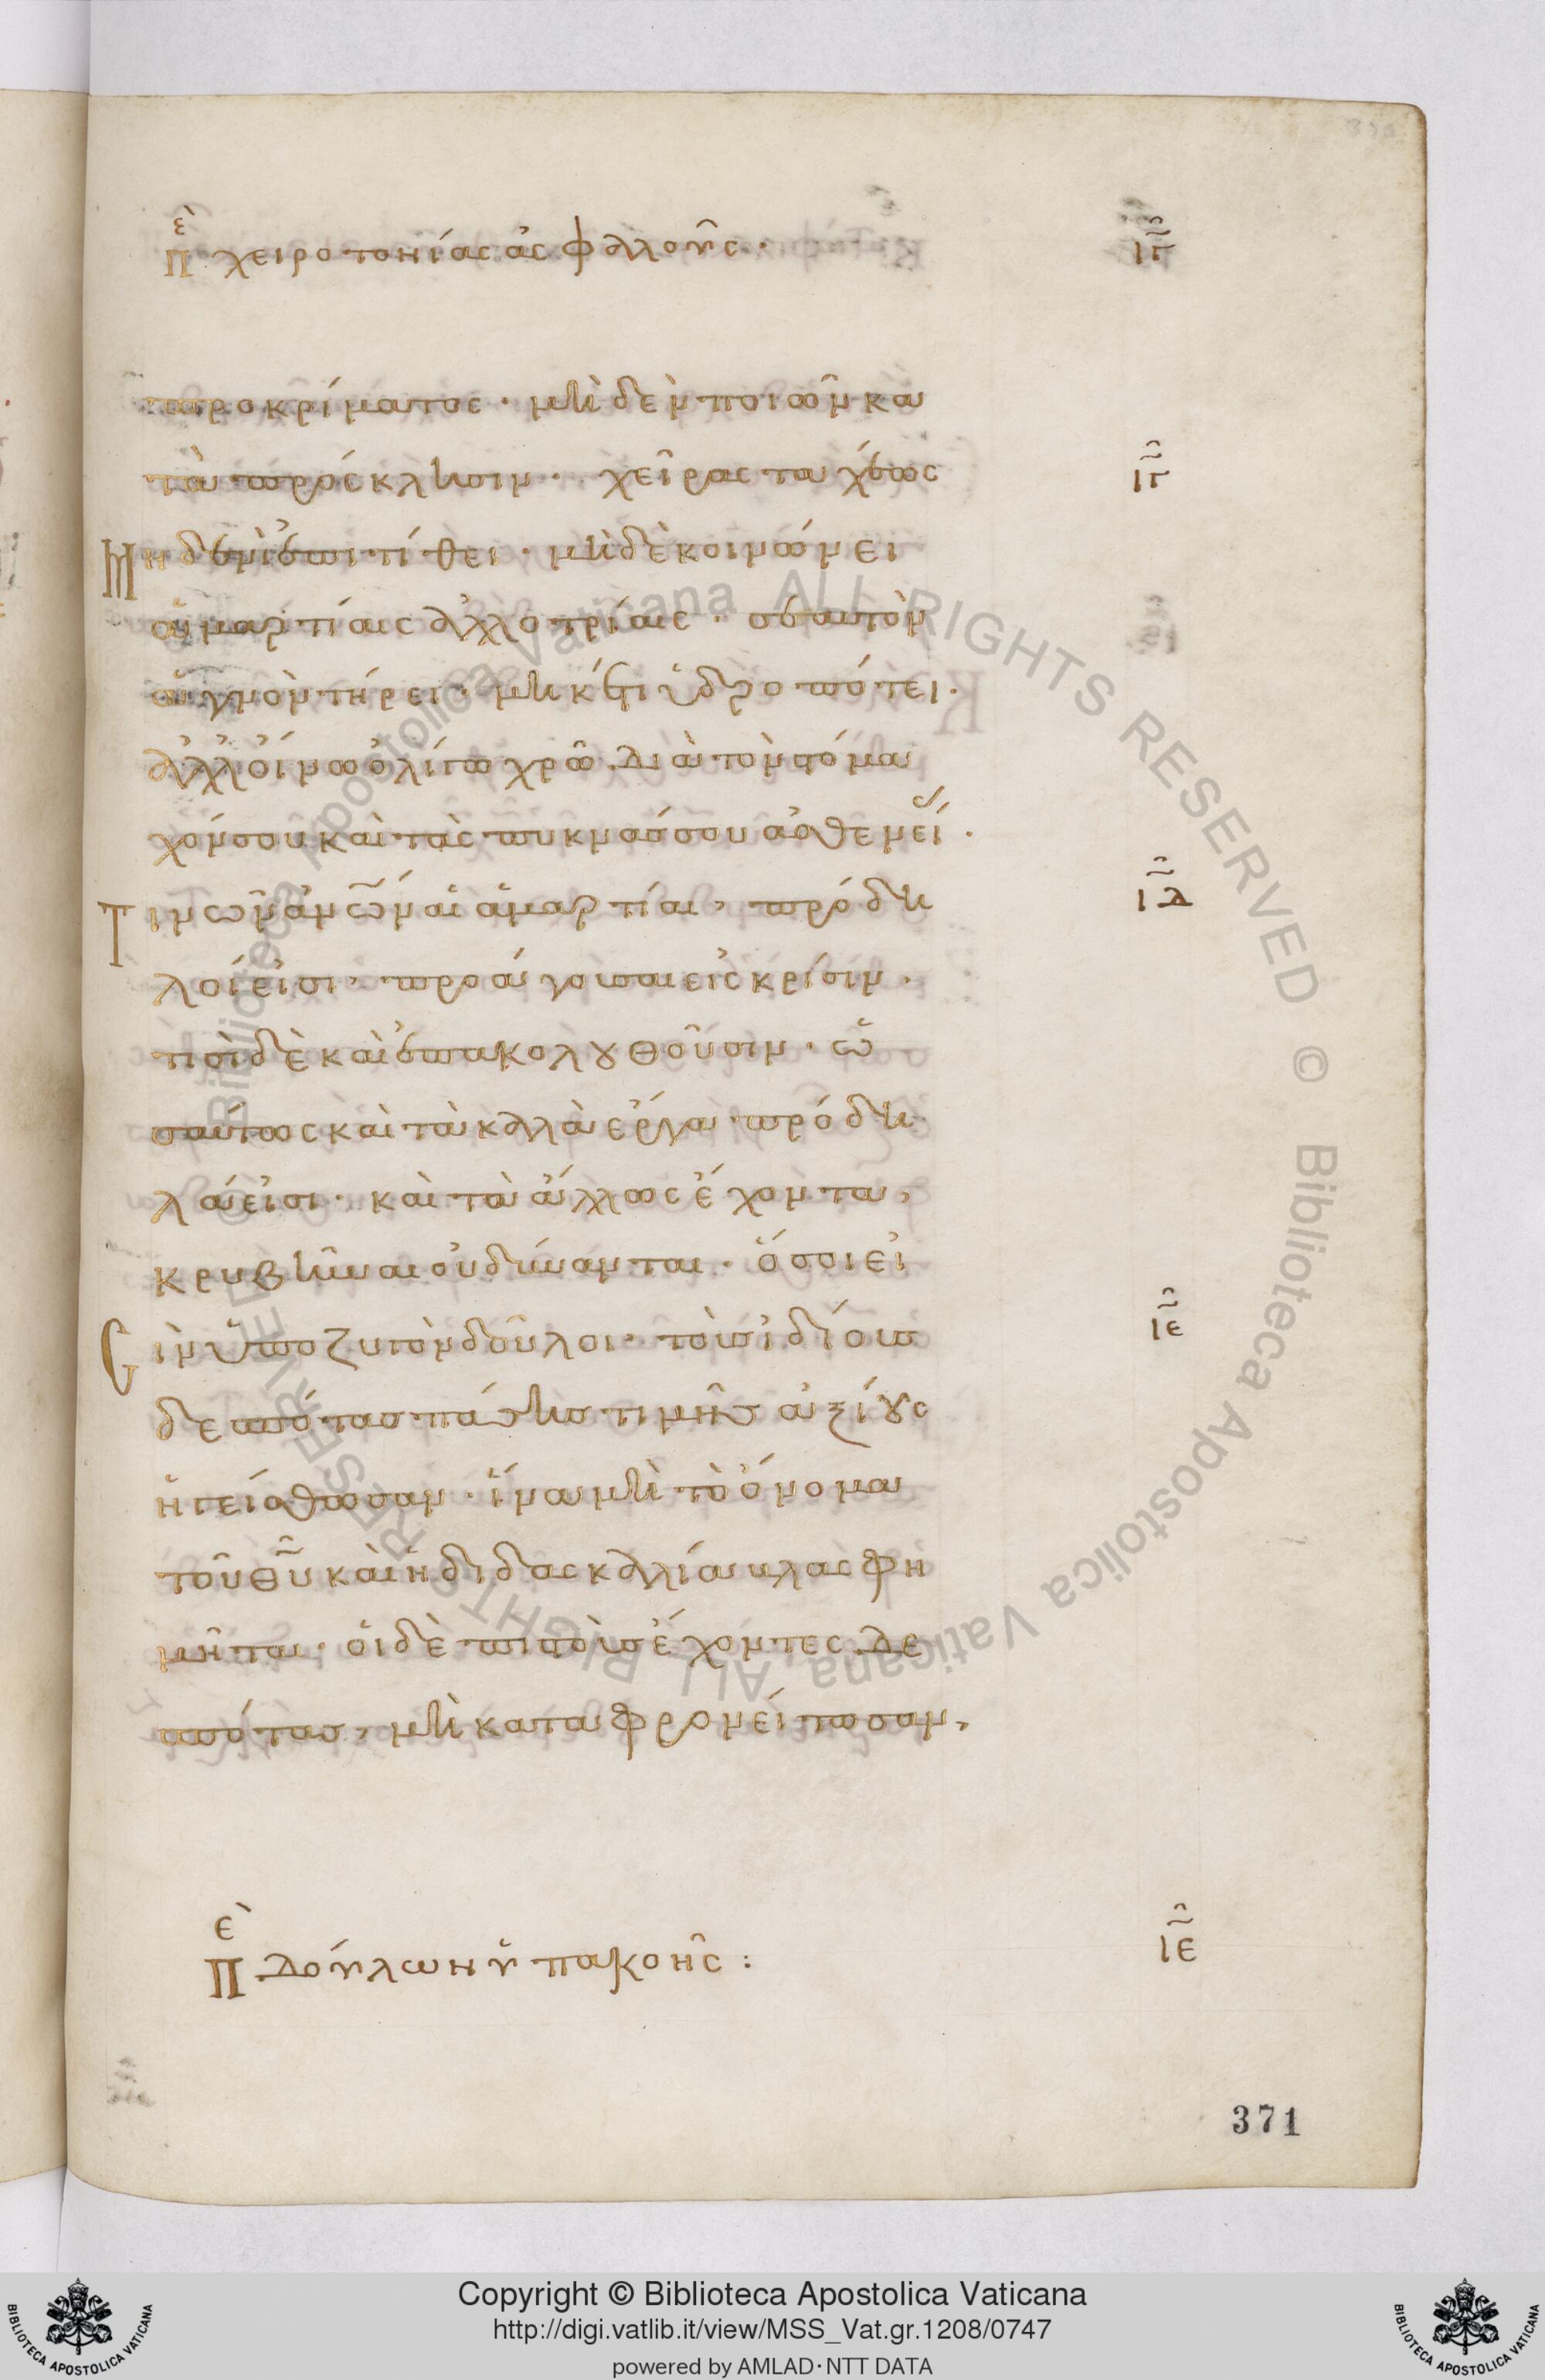 Πε χειροτονίας ἀσφαλοῦς · ΙΓ
προκρίματος · μηδὲν ποιῶν κα
τὰ πρόσκλησιν · χεῖρας ταχέως ΙΓ
Μηδενὶ ἐπιτίθει · μηδὲ κοινώνει
ἁμαρτίαις ἀλλοτρίαις · σεαυτὸν
ἁγνὸν τήρει · μηκέτι ὑδροπότει ·
ἀλλ' οἴνω ὀλίγω χρῶ διὰ τὸν στόμα
χόν σου καὶ τὰς πυκνάς σου ἀσθενεί ·
Τινῶν ἀνῶν αἱ ἁμαρτίαι, πρόδη ΙΔ
λοί εἰσι · προάγουσαι εἰς κρίσιν ·
τισὶ δὲ καὶ ἐπακολουθοῦσιν · ὡ
σαύτως καὶ τὰ καλὰ ἔργα πρόδη
λά εἰσι · καὶ τὰ ἄλλως ἔχοντα,
κρυβῆναι οὐ δύνανται · ὅσοι εἰ
Εἰν ὑπὸ ζυγὸν δοῦλοι · τοὺς ἰδίους ΙΕ
δεσπότας πάσης τιμῆς ἀξίους
ἡγείσθωσαν · ἵνα μὴ τὸ ὄνομα
τοῦ θῦ καὶ ἡ διδασκαλία βλασφη
μῆται · οἱ δὲ πιστοὺς ἔχοντες δε
σπότας, μὴ καταφρονείτωσαν,
Πε Δούλων ὑπακοῆς : ΙΕ
371
Copyright © Biblioteca Apostolica Vaticana
http://digi.vatlib.it/view/MSS_Vat.gr.1208/0747
powered by AMLAD·NTT DATA
BIBLIOTECA APOSTOLICA VATICANA
BIBLIOTECA APOSTOLICA VATICANA
© Biblioteca Apostolica Vaticana ALL RIGHTS RESERVED © Biblioteca Apostolica Vaticana ALL RIGHTS RESERVED